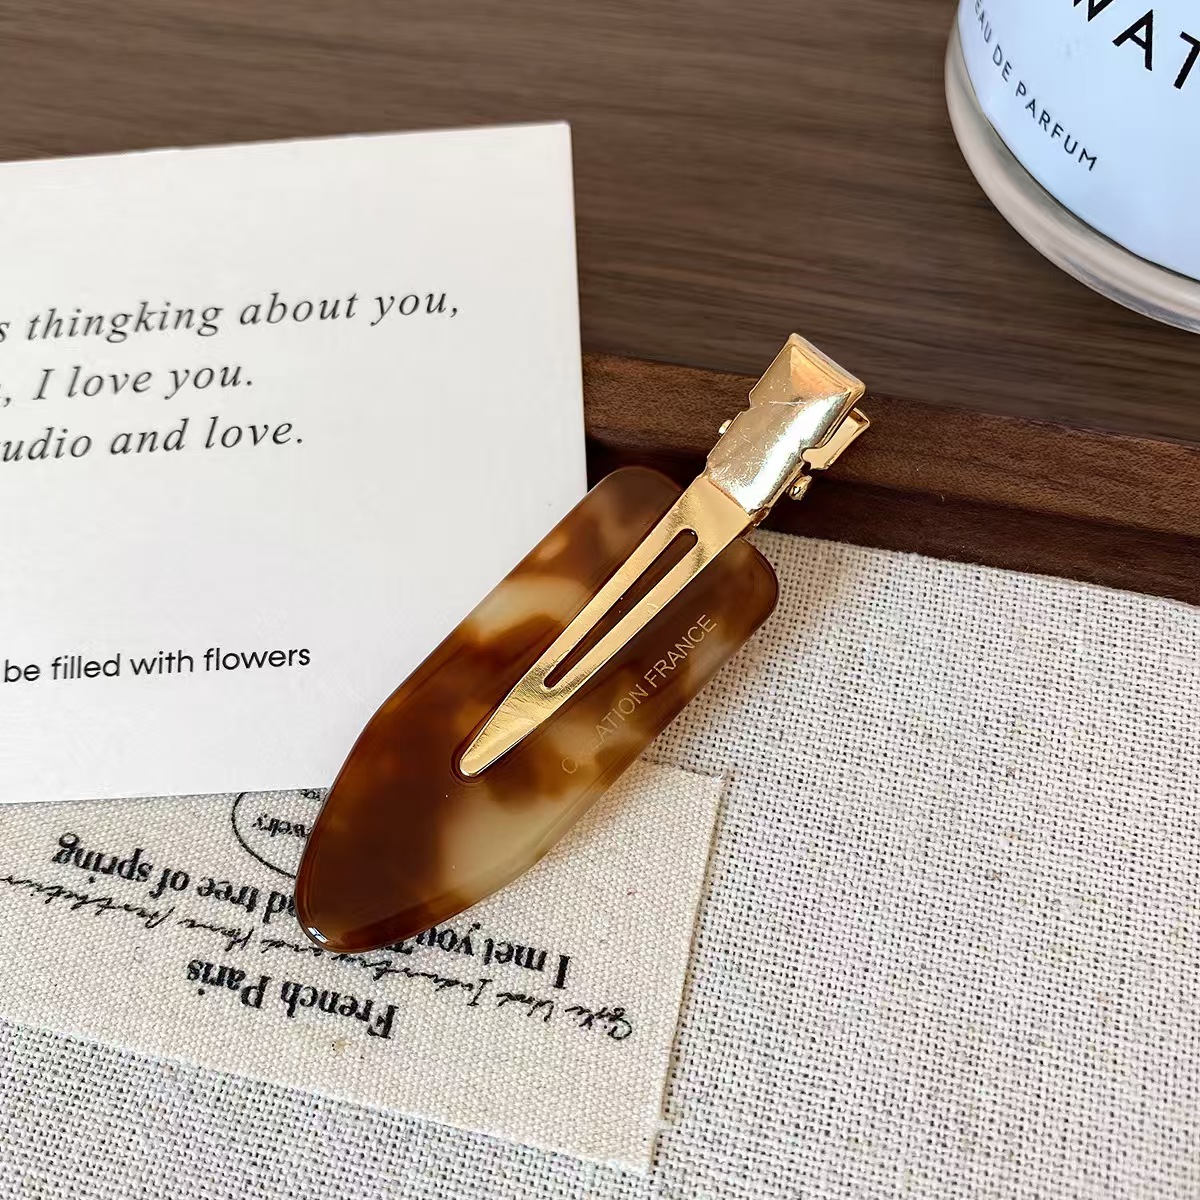 WAT
EAU DE PARFUM
s thingking about you,
, I love you.
udio and love.
be filled with flowers
CREATION FRANCE
French Paris
I met you
ad tree of spring